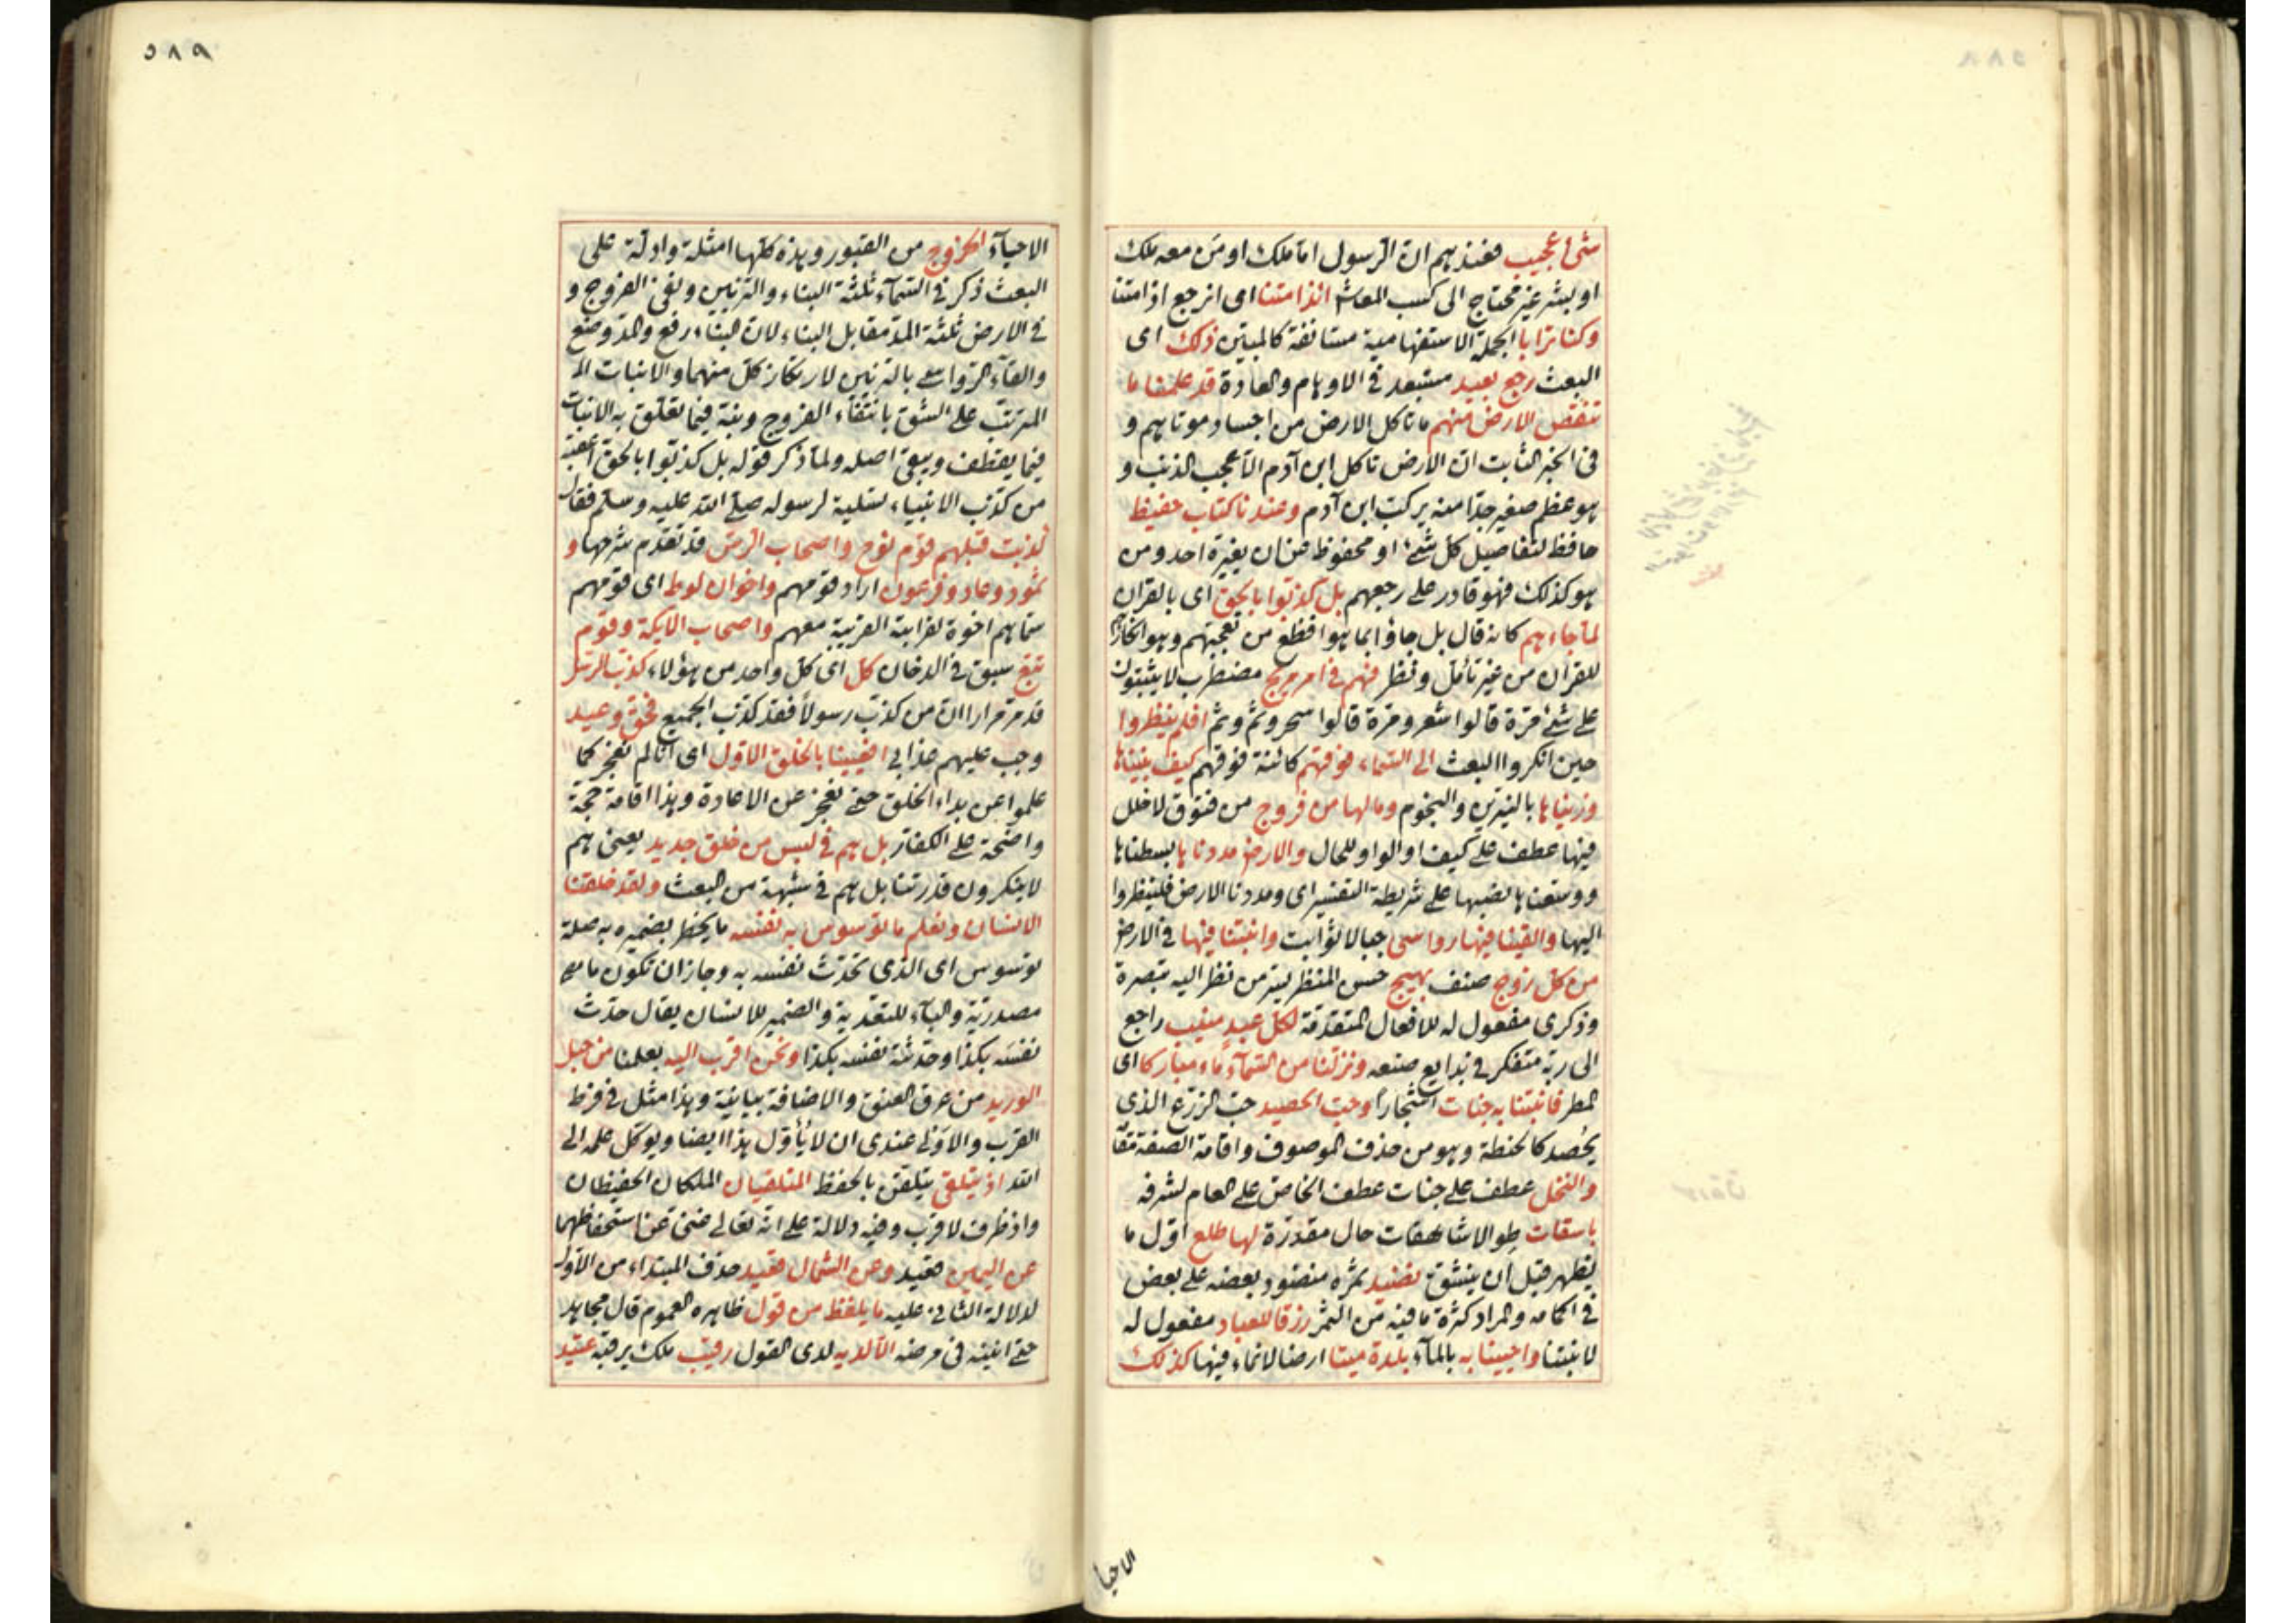 شئ عجيب فعندهم ان الرسول اما ملك او من معه ملك
او بشر غير محتاج الى كسب المعاش ائذا متنا اى انرجع اذا متنا
وكنا ترابا الجملة الاستفهامية مستانفة كالمبين ذلك اى
البعث رجع بعيد مستبعد فى الاوهام والعادة قد علمنا ما
تنقص الارض منهم ما تاكل الارض من اجساد موتاهم و
فى الخبر الثابت ان الارض تاكل ابن آدم الا عجب الذنب و
هو عظم صغير جدا منه يركب ابن آدم وعندنا كتاب حفيظ
حافظ لتفاصيل كل شئ او محفوظ من ان يغيره احد ومن
هو كذلك فهو قادر على رجعهم بل كذبوا بالحق اى بالقران
لما جاءهم كانه قال بل جاؤا بما هو افظع من تعجبهم وهو انكارهم
للقران من غير تأمل ونظر فهم فى امر مريج مضطرب لا يثبتون
على شئ مرة قالوا شعر ومرة قالوا سحر وثم وثم افلم ينظروا
حين انكروا البعث الى السماء فوقهم كائنة فوقهم كيف بنيناها
وزيناها بالنيرين والنجوم وما لها من فروج من فتوق لا خلل
فيها عطف على كيف او الواو للحال والارض مددناها بسطناها
ووسعناها نصبها على شريطة التفسير اى ومددنا الارض فلينظروا
اليها والقينا فيها رواسى جبالا ثوابت وانبتنا فيها فى الارض
من كل زوج صنف بهيج حسن المنظر يسر من نظر اليه تبصرة
وذكرى مفعول له للافعال المتقدمة لكل عبد منيب راجع
الى ربه متفكر فى بدايع صنعه ونزلنا من السماء ماء مباركا اى
المطر فانبتنا به جنات اشجارا وحب الحصيد حب الزرع الذى
يحصد كالحنطة وهو من حذف الموصوف واقامة الصفة مقا
والنخل عطف على جنات عطف الخاص على العام لشرفه
باسقات طوالا شاهقات حال مقدرة لها طلع اول ما
يظهر قبل ان ينشق نضيد ثمره منضود بعضه على بعض
فى اكمامه والمراد كثرة ما فيه من الثمر رزقا للعباد مفعول له
لانبتنا واحيينا به بالماء بلدة ميتا ارضا لا نماء فيها كذلك
الاحيا
٥٨٩
الاحياء الخروج من القبور وهذه كلها امثلة وادلة على
البعث ذكر فى السماء ثلثة البناء والتزيين ونفى الفروج و
فى الارض ثلثة المد مقابل البناء لان البناء رفع والمد وضع
والقاء الرواسى بالتزيين لارتكاز كل منهما والانبات الـ
المترتب على الشق بانتفاء الفروج ونبه فيما تعلق به الانبات
فيما يقطف ويبقى اصله ولما ذكر قوله بل كذبوا بالحق اعقبه
من كذب الانبياء تسلية لرسوله صلى الله عليه وسلم فقال
كذبت قبلهم قوم نوح واصحاب الرس قد تقدم شرحها و
ثمود وعاد وفرعون اراد قومهم واخوان لوط اى قومهم
سماهم اخوة لقرابته القريبة معهم واصحاب الايكة وقوم
تبع سبق فى الدخان كل اى كل واحد من هؤلاء كذب الرسل
قد مر مرارا ان من كذب رسولا فقد كذب الجميع فحق وعيد
وجب عليهم عذابى افعيينا بالخلق الاول اى انا لم نعجز كما
علموا عن بداء الخلق حتى نعجز عن الاعادة وهذا اقامة حجة
واضحة على الكفار بل هم فى لبس من خلق جديد يعنى هم
لا ينكرون قدرتنا بل هم فى شبهة من البعث ولقد خلقنا
الانسان ونعلم ما توسوس به نفسه ما يخطر بضميره به صلة
توسوس اى الذى تحدث نفسه به وجاز ان تكون ما
مصدرية والباء للتعدية والضمير للانسان يقال حدث
نفسه بكذا وحدثته نفسه بكذا ونحن اقرب اليه بعلمنا من حبل
الوريد من عرق العنق والاضافة بيانية وهذا مثل فى فرط
القرب والاولى عندى ان لا يأول هذا ايضا ويوكل علمه الى
الله اذ يتلقى يتلقن بالحفظ المتلقيان الملكان الحفيظان
واذ ظرف لاقرب وفيه دلالة على انه تعالى غنى عن استحفاظهما
عن اليمين قعيد وعن الشمال قعيد حذف المبتداء من الاول
لدلالة الثانى عليه ما يلفظ من قول ظاهره العموم قال مجاهد
حتى انينه فى مرضه الا لديه لدى القول رقيب ملك يرقبه عتيد